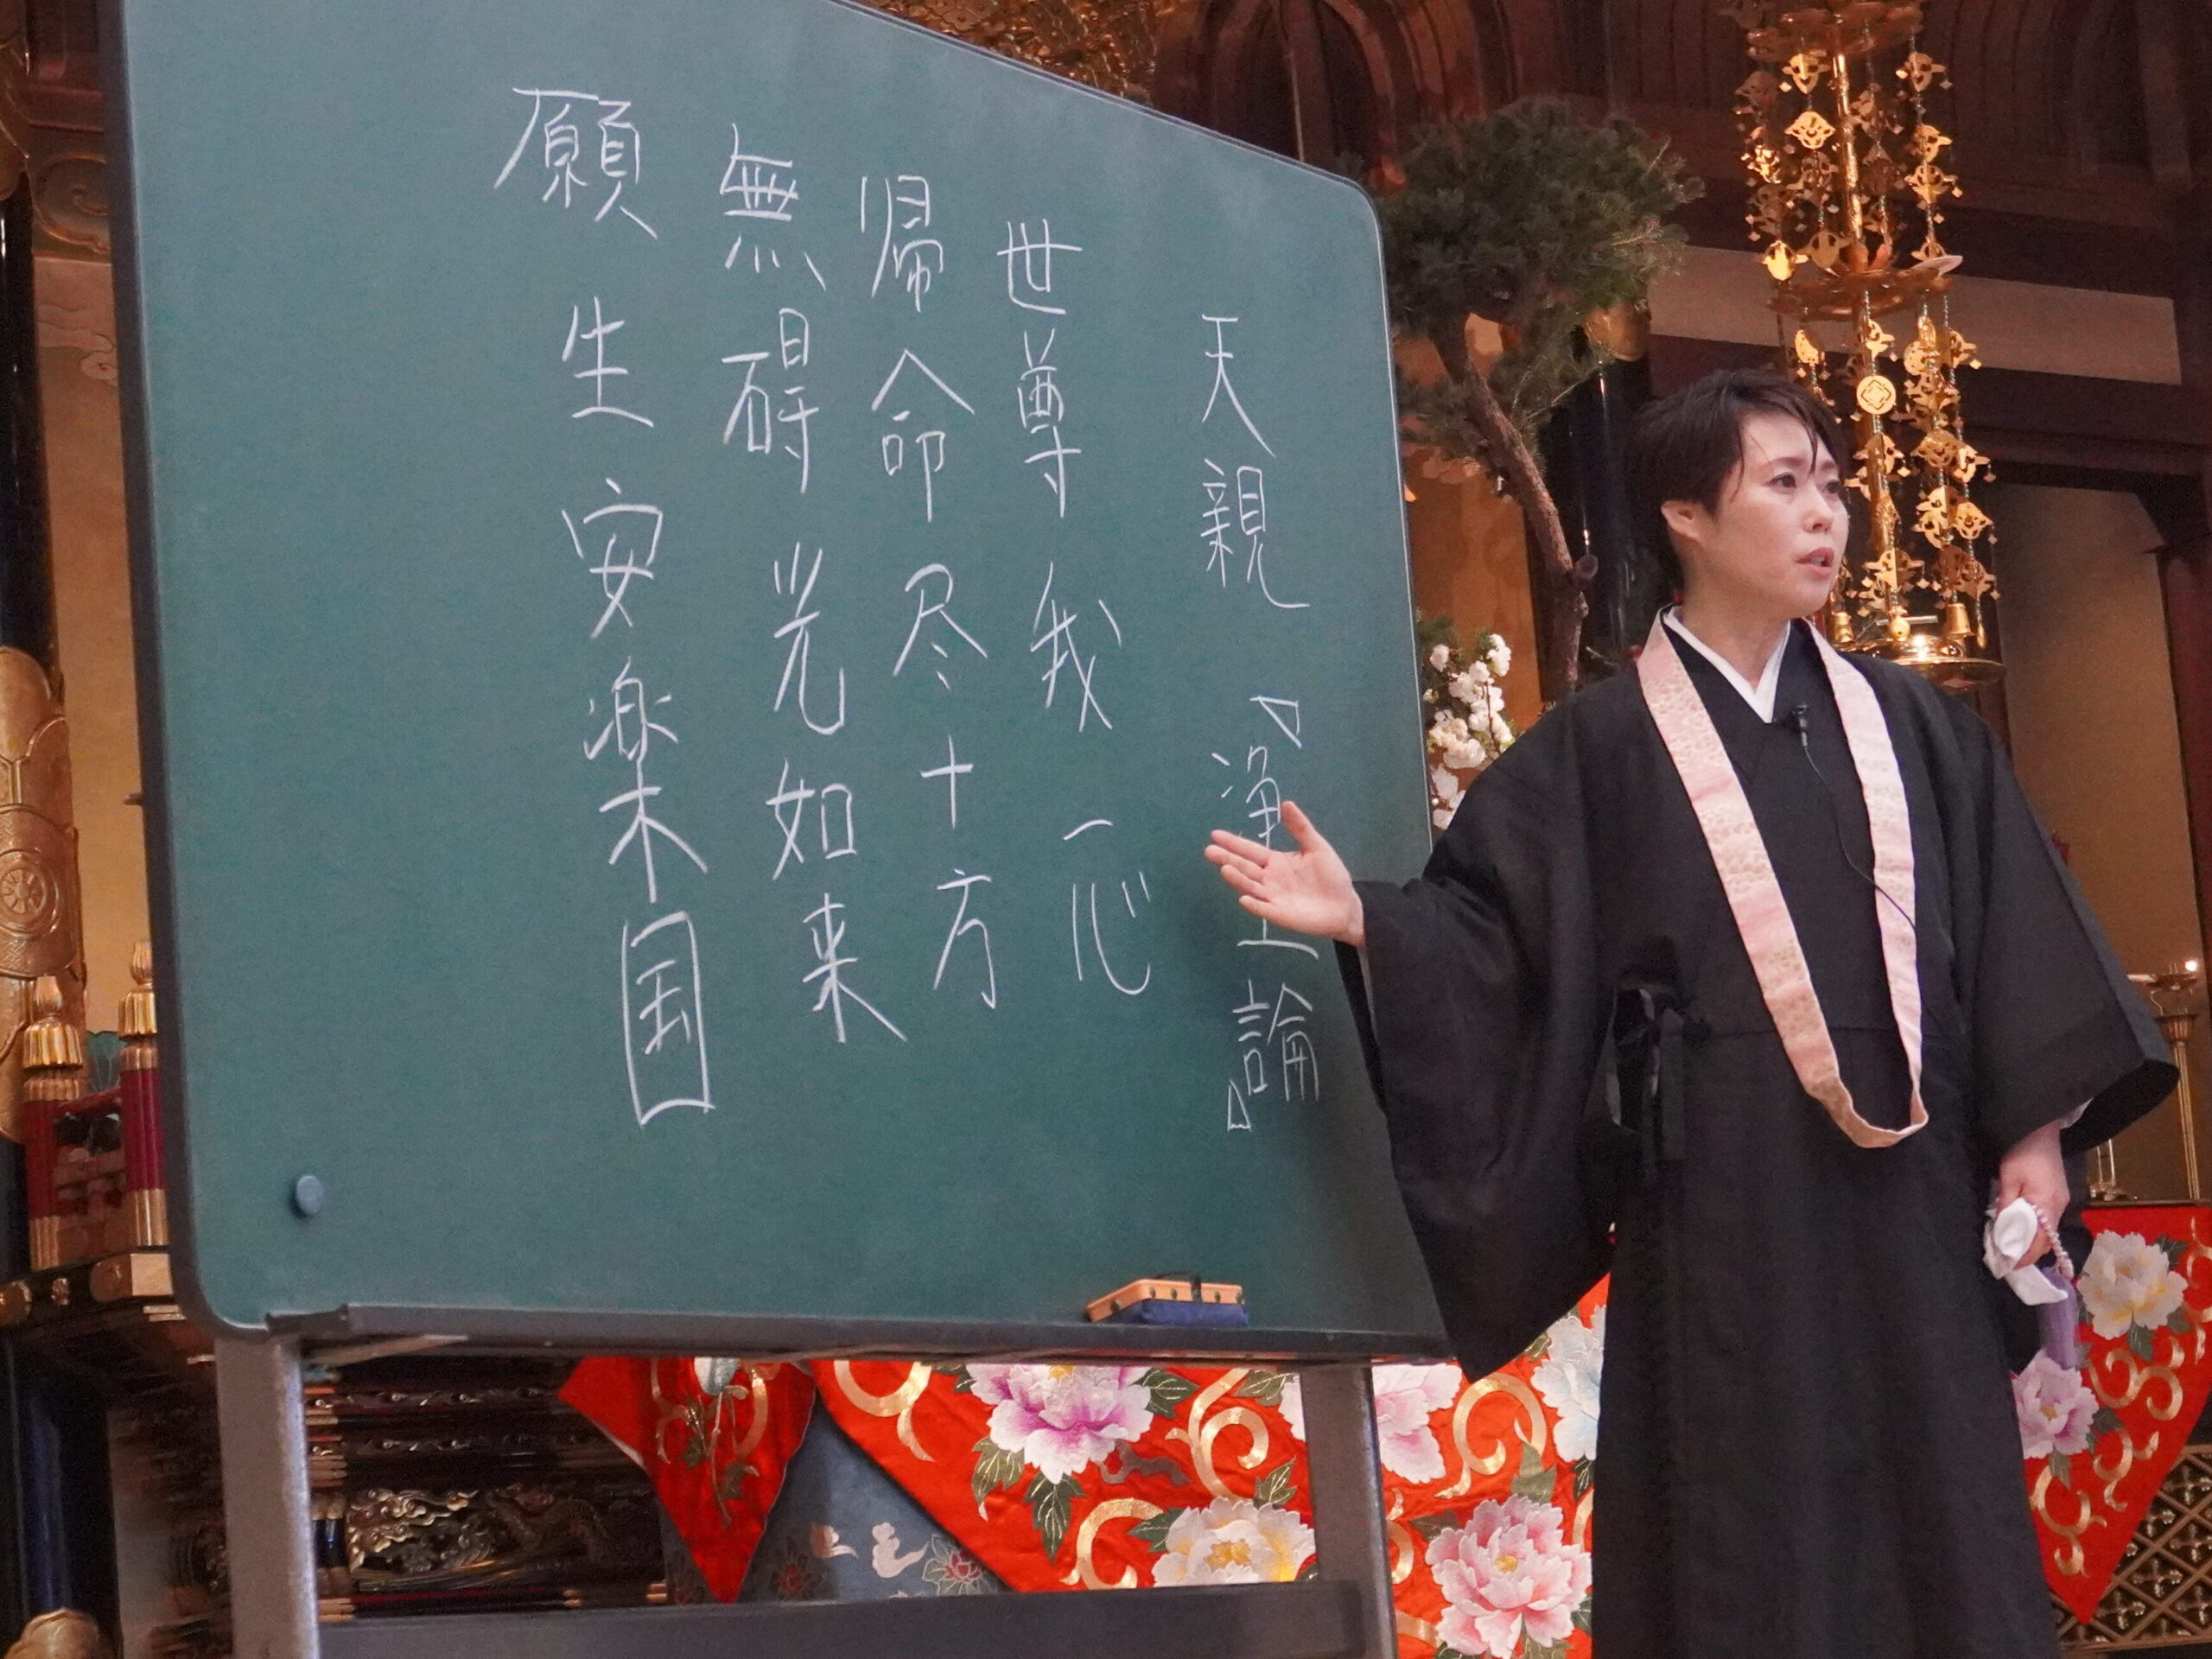 天親『浄土論』
世尊我一心
帰命尽十方
無碍光如来
願生安楽国